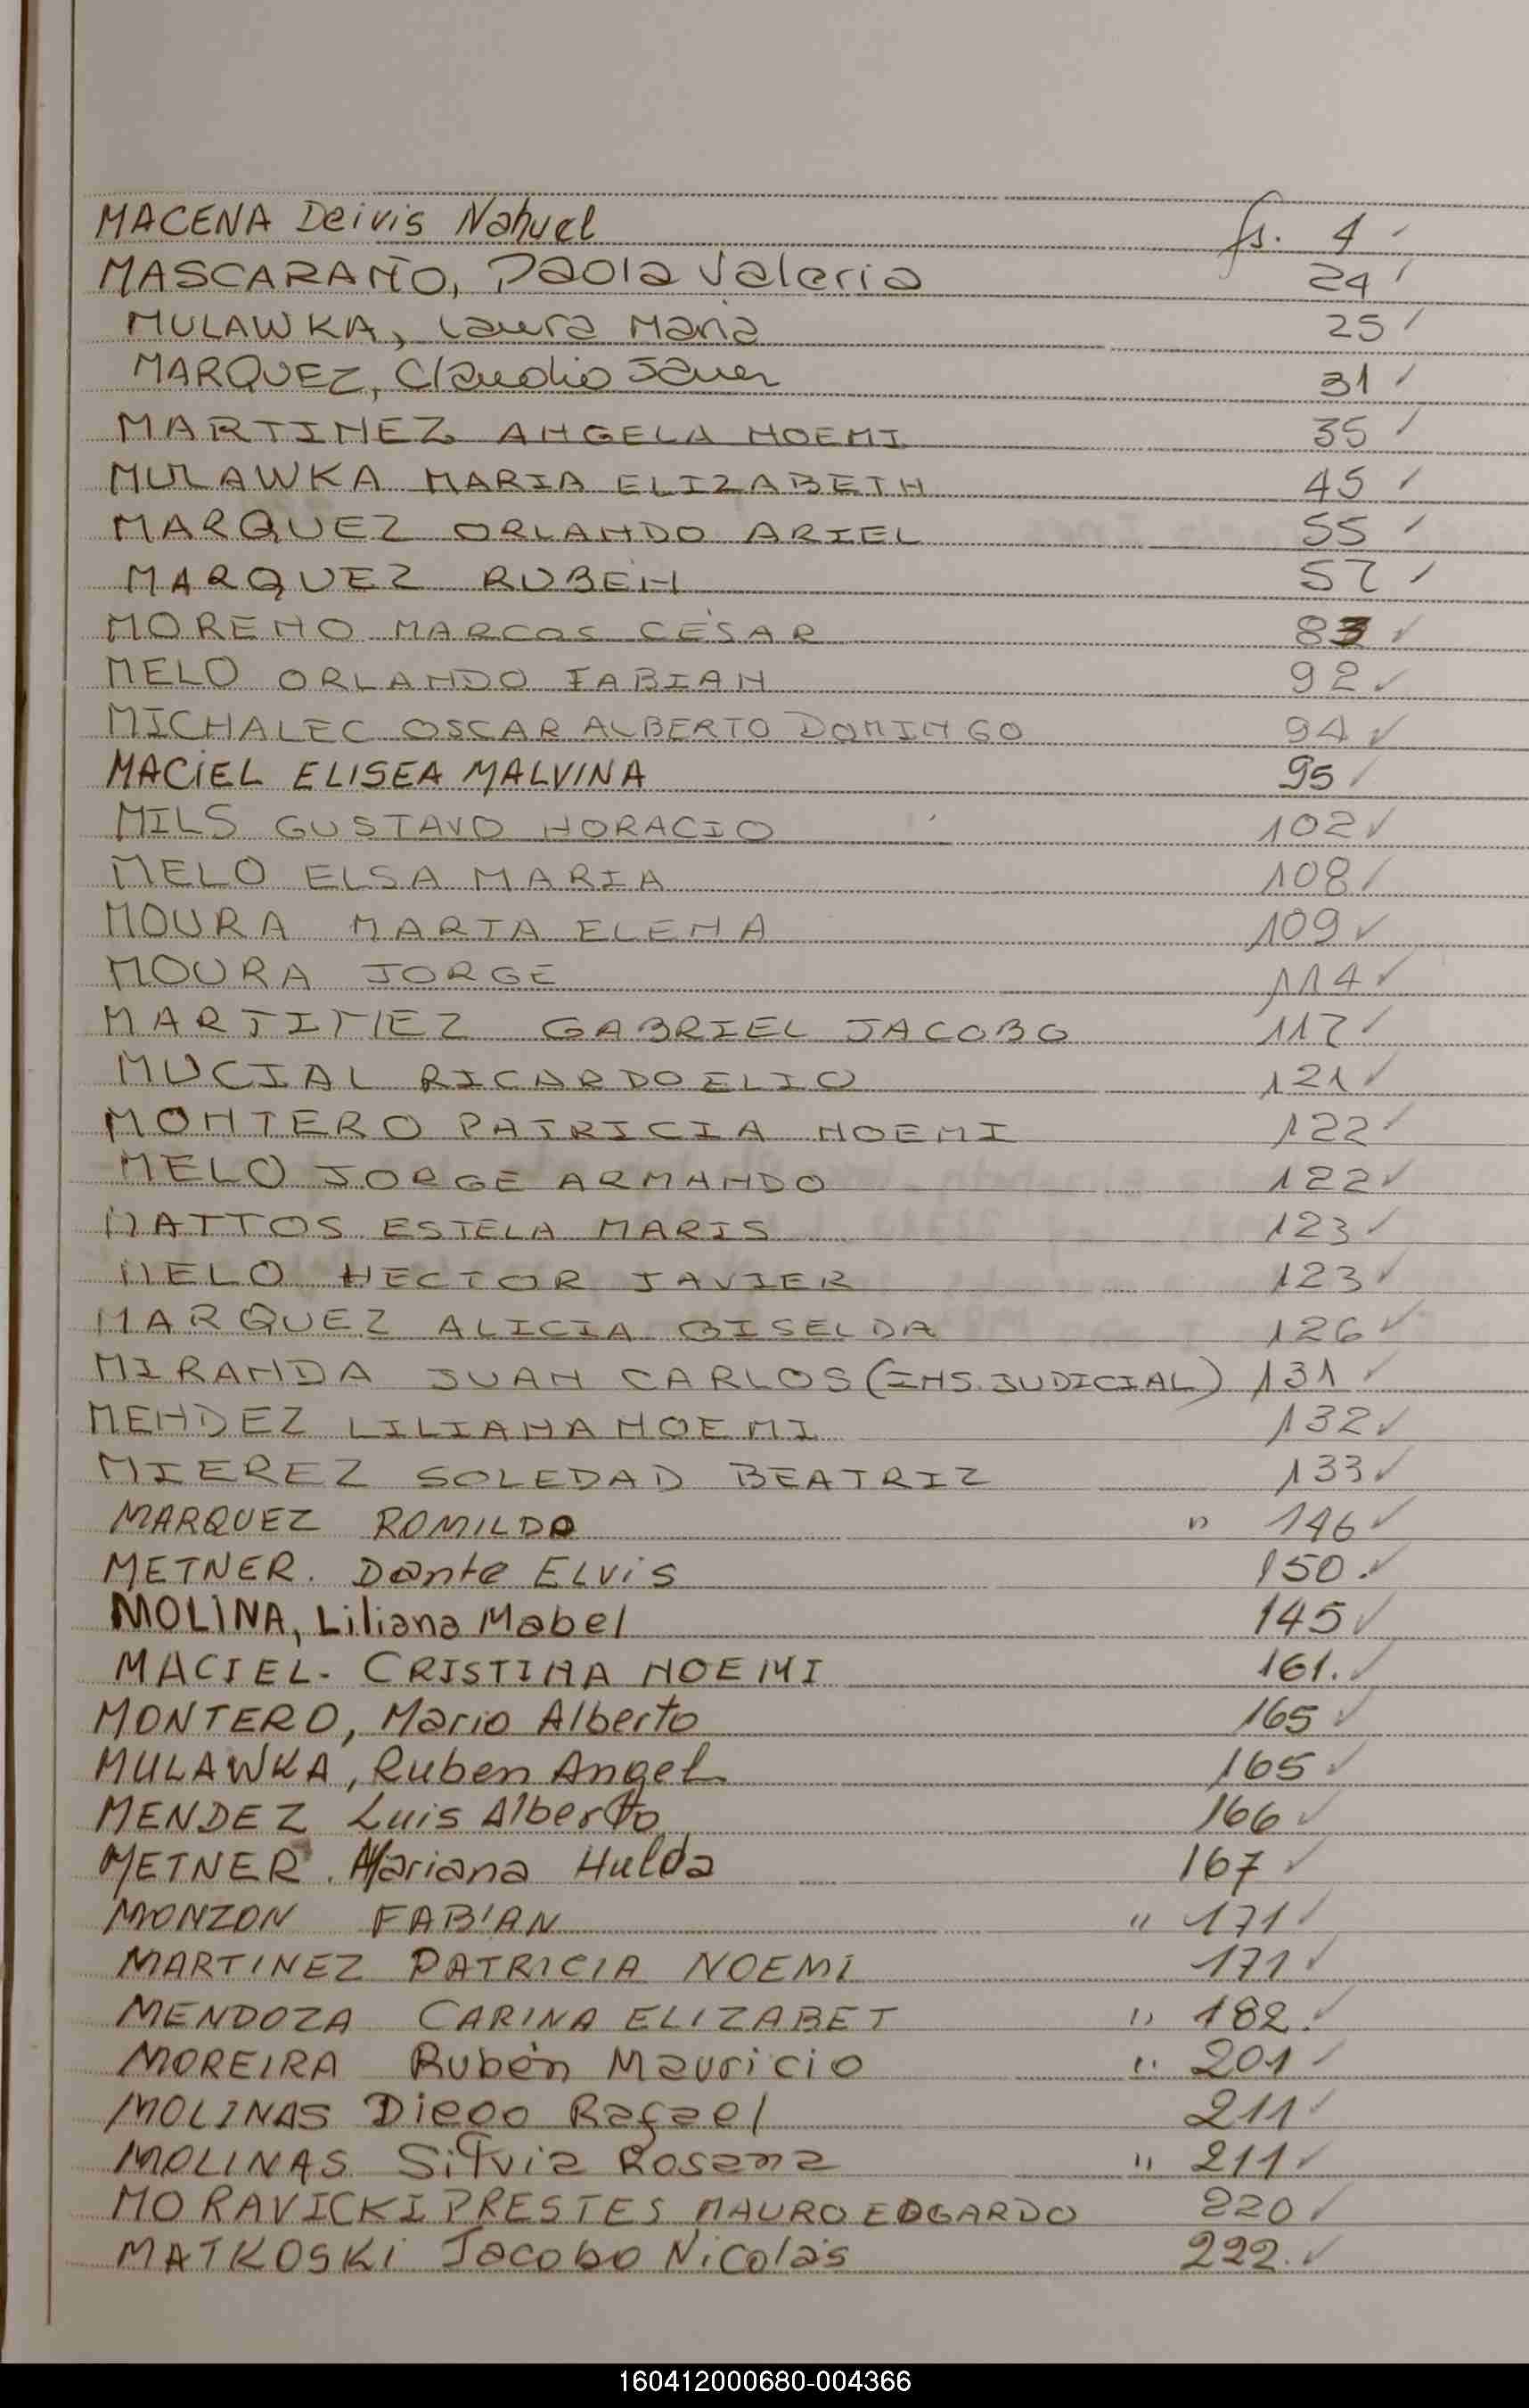 MACENA Deivis Nahuel fs. 4
MASCARAÑO, Paola Valeria 24
MULAWKA, Laura Maria 25
MARQUEZ, Claudio Javier 31
MARTINEZ ANGELA NOEMI 35
MULAWKA MARIA ELIZABETH 45
MARQUEZ ORLANDO ARIEL 55
MARQUEZ RUBEN 57
MORENO MARCOS CÉSAR 83
MELO ORLANDO FABIAN 92
MICHALEC OSCAR ALBERTO DOMINGO 94
MACIEL ELISEA MALVINA 95
MILS GUSTAVO HORACIO 102
MELO ELSA MARIA 108
MOURA MARTA ELENA 109
MOURA JORGE 114
MARTINEZ GABRIEL JACOBO 117
MUCIAL RICARDO ELIO 121
MONTERO PATRICIA NOEMI 122
MELO JORGE ARMANDO 122
MATTOS ESTELA MARIS 123
MELO HECTOR JAVIER 123
MARQUEZ ALICIA GISELDA 126
MIRANDA JUAN CARLOS (INS. JUDICIAL) 131
MENDEZ LILIANA NOEMI 132
MIEREZ SOLEDAD BEATRIZ 133
MARQUEZ ROMILDO " 146
METNER. Dante ELVIS 150.
MOLINA, Liliana Mabel 145
MACIEL- CRISTINA NOEMI 161.
MONTERO, Mario Alberto 165
MULAWKA, Ruben Angel 165
MENDEZ Luis Alberto 166
METNER. Mariana Hulda 167
MONZON FABIAN " 171
MARTINEZ PATRICIA NOEMI 171
MENDOZA CARINA ELIZABET " 182.
MOREIRA Rubén Mauricio " 201
MOLINAS Diego Rafael 211
MOLINAS Silvia Rosana " 211
MORAVICKI PRESTES MAURO EDGARDO 220
MATKOSKI Jacobo Nicolás 222.
160412000680-004366